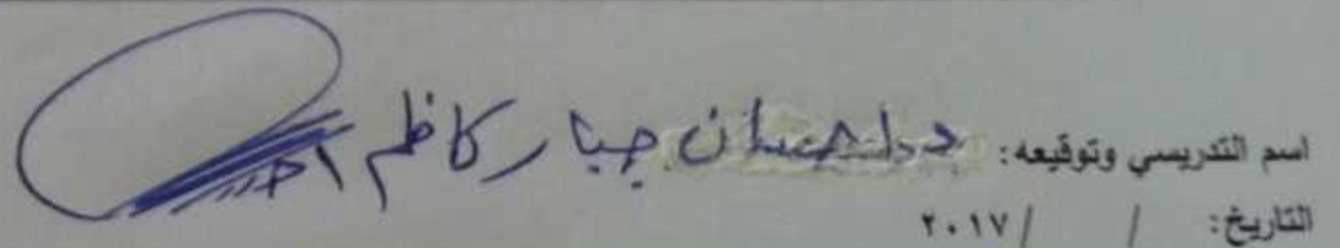 اسم التدريسي وتوقيعه: د. احسان جبار كاظم
التاريخ: / / ٢٠١٧